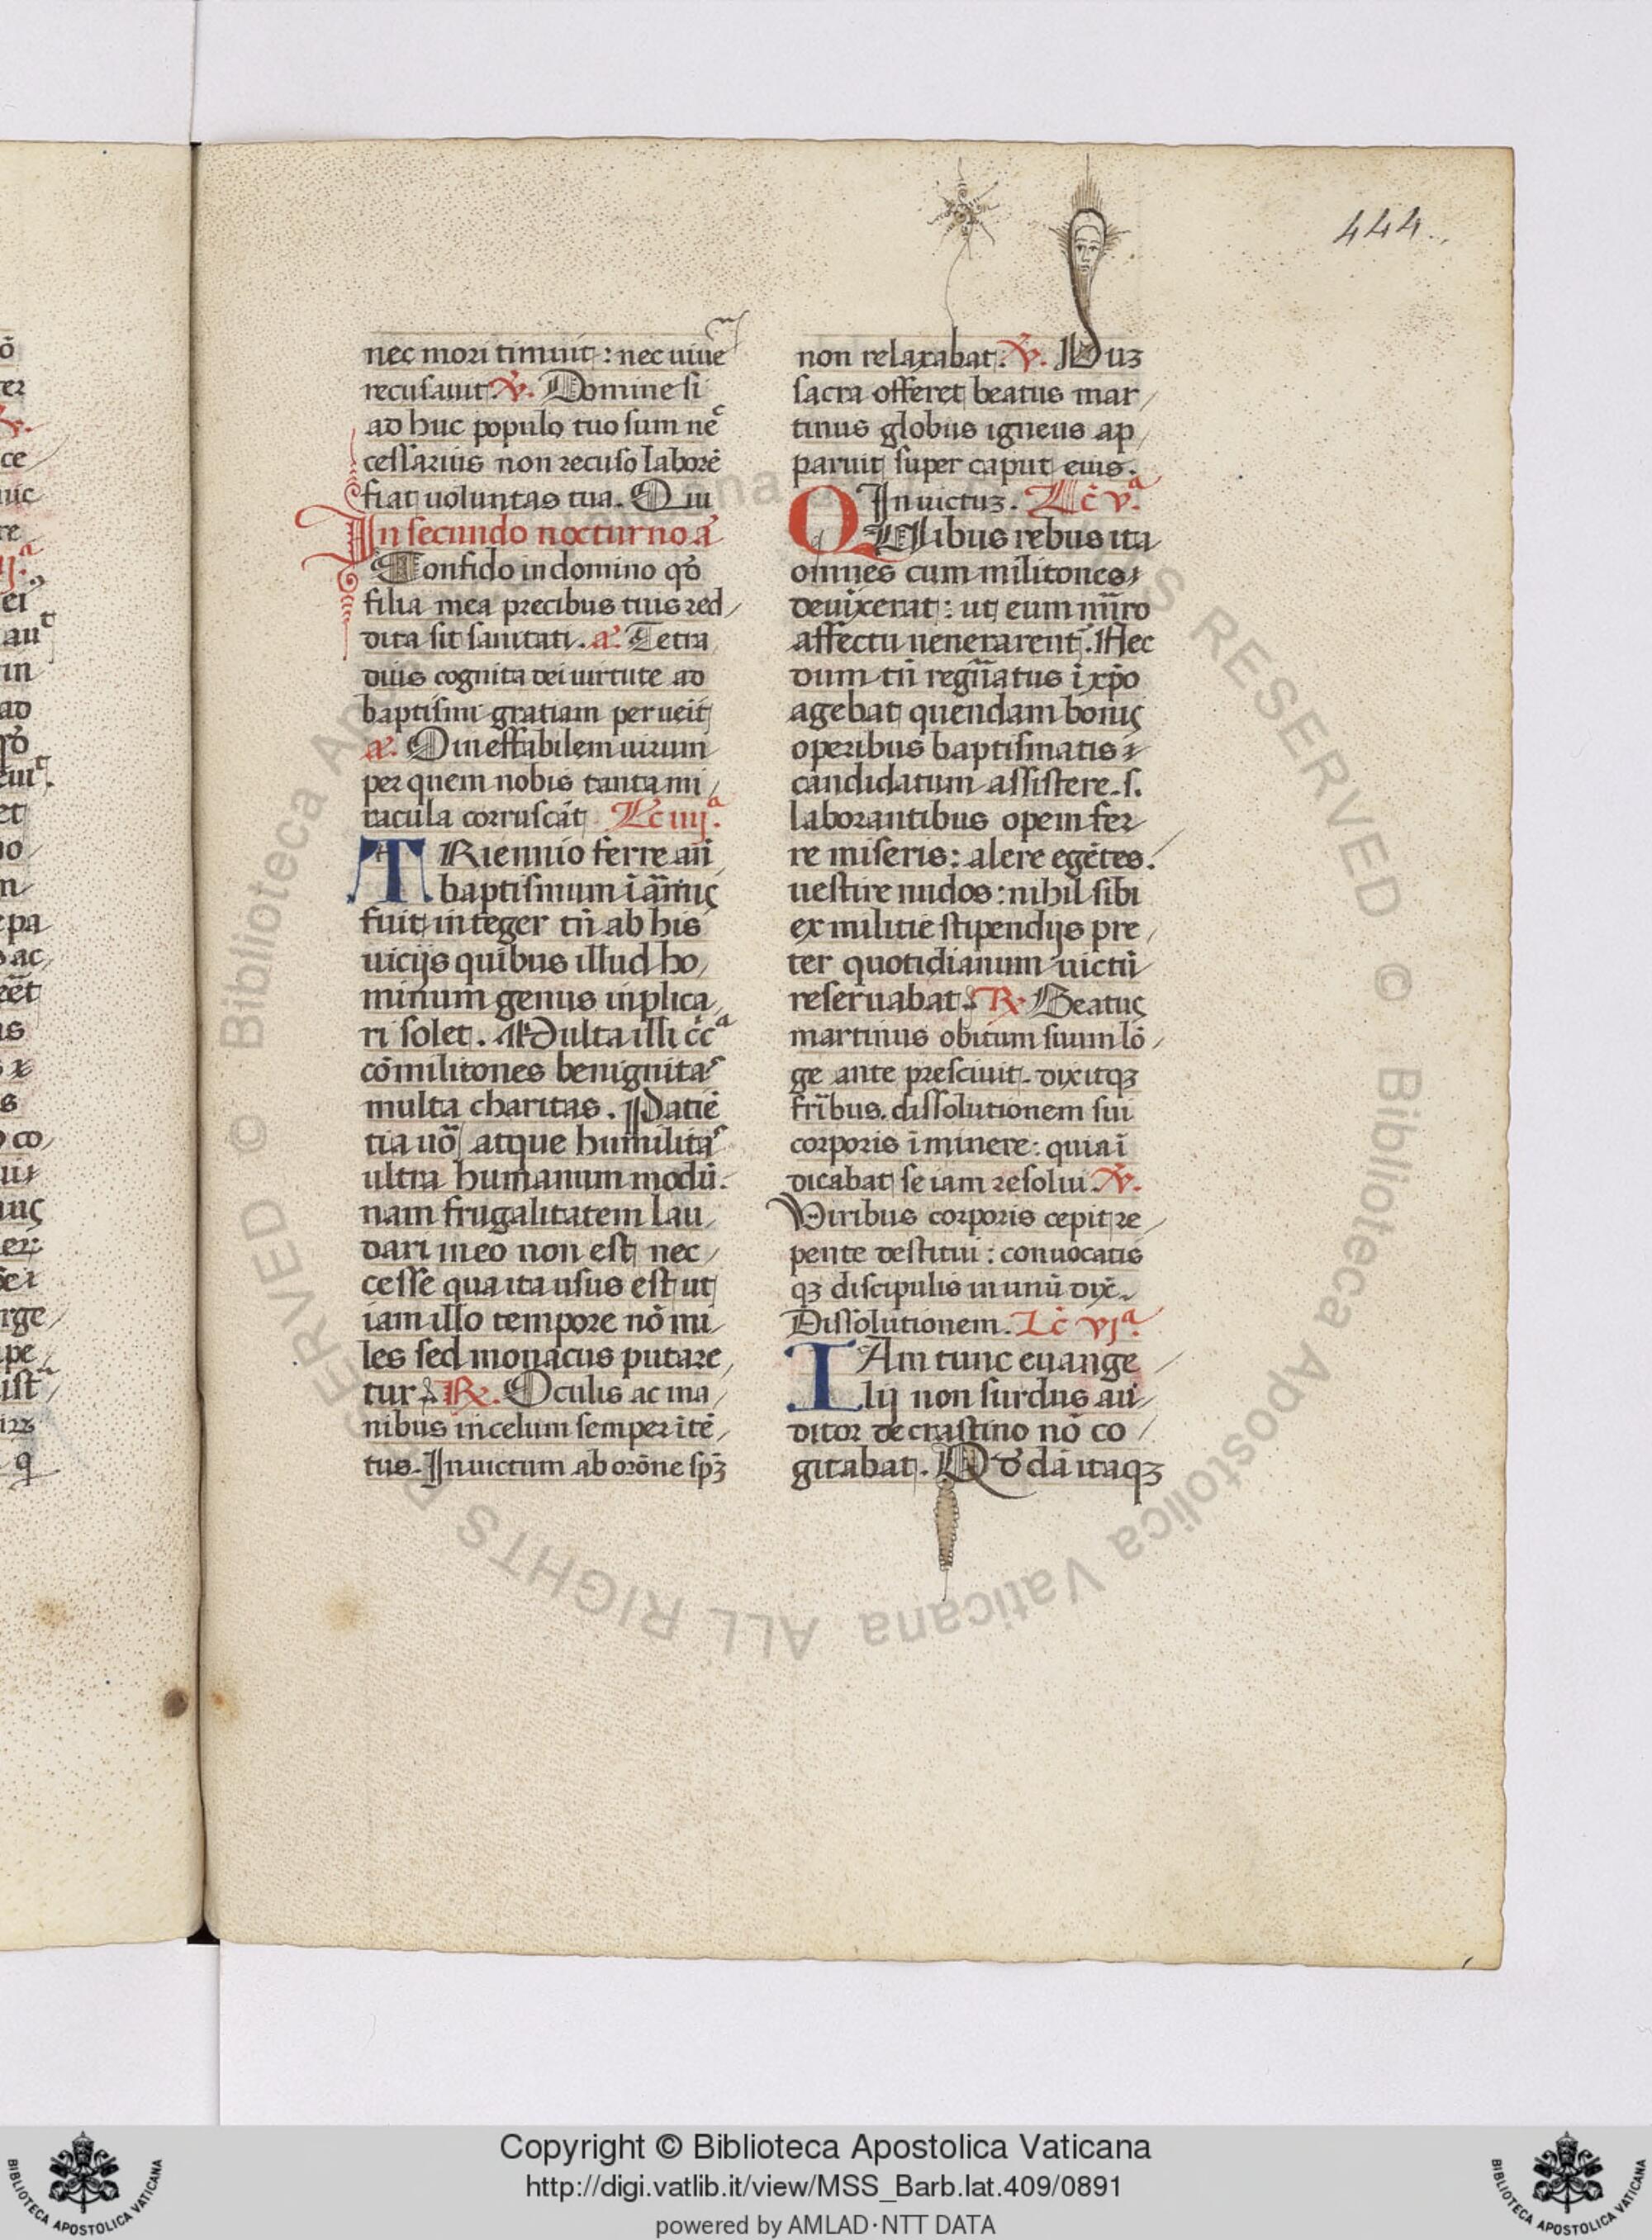 444.
nec mori timuit: nec uiuē
recusauit. ℣. Domine si
ad huc populo tuo sum nē
cessarius non recuso laborē
fiat uoluntas tua. O uí
In secundo nocturno a᷑
Confido in domino qđ
filia mea precibus tuis red
dita sit sanitati. a᷑. Tetra
duis cognita dei uirtute ad
baptismi gratiam perueit
a᷑. O ineffabilem uirum
per quem nobis tanta mi
racula corruscāt Lc̄ iiijª.
TRiennio ferre añ
baptismum ī armꝰ
fuit integer tn̄ ab his
uicijs quibus illud ho
minum genus inplica
ri solet. Multa illi cc̄ª
cōmilitones benignitaˢ
multa charitas. Patiē
tia uō atque humilitaˢ
ultra humanum modū.
nam frugalitatem lau
dari in eo non est nec
cesse qua ita usus est ut
iam illo tempore nō mi
les sed monacus putare
tur ℟. Oculis ac ma
nibus in celum semper ītē
tus. Inuictum ab orōne spꝫ
non relaxabat. ℣. Duꝫ
sacra offeret beatus mar
tinus globus igneus ap
paruit super caput eius.
Inuictuꝫ. Lc̄ vª.
QUibus rebus ita
omnes cum militones
deuixerat: ut eum mīro
affectu uenerarent᷑. Nec
dum tn̄ regn̄atus ī xp̄o
agebat quendam bonis
operibus baptismatis
candidatum assistere. s.
laborantibus opem fer
re miseris: alere egētes.
uestire nudos: nihil sibi
ex militie stipendijs pre
ter quotidianum uictū
reseruabat. ℟. Beatus
martinus obitum suum lō
ge ante presciuit. dixitqꝫ
fr̄ibus. dissolutionem sui
corporis īminere: quia ī
dicabat se iam resolui. ℣.
Viribus corporis cepit re
pente destitui: conuocatis
qꝫ discipulis in unū dix̄.
Dissolutionem. Lc̄ vjª.
IAm tunc euange
lij non surdus au
ditor de crastino nō co
gitabat. Qđdā itaqꝫ
Copyright © Biblioteca Apostolica Vaticana
http://digi.vatlib.it/view/MSS_Barb.lat.409/0891
powered by AMLAD·NTT DATA